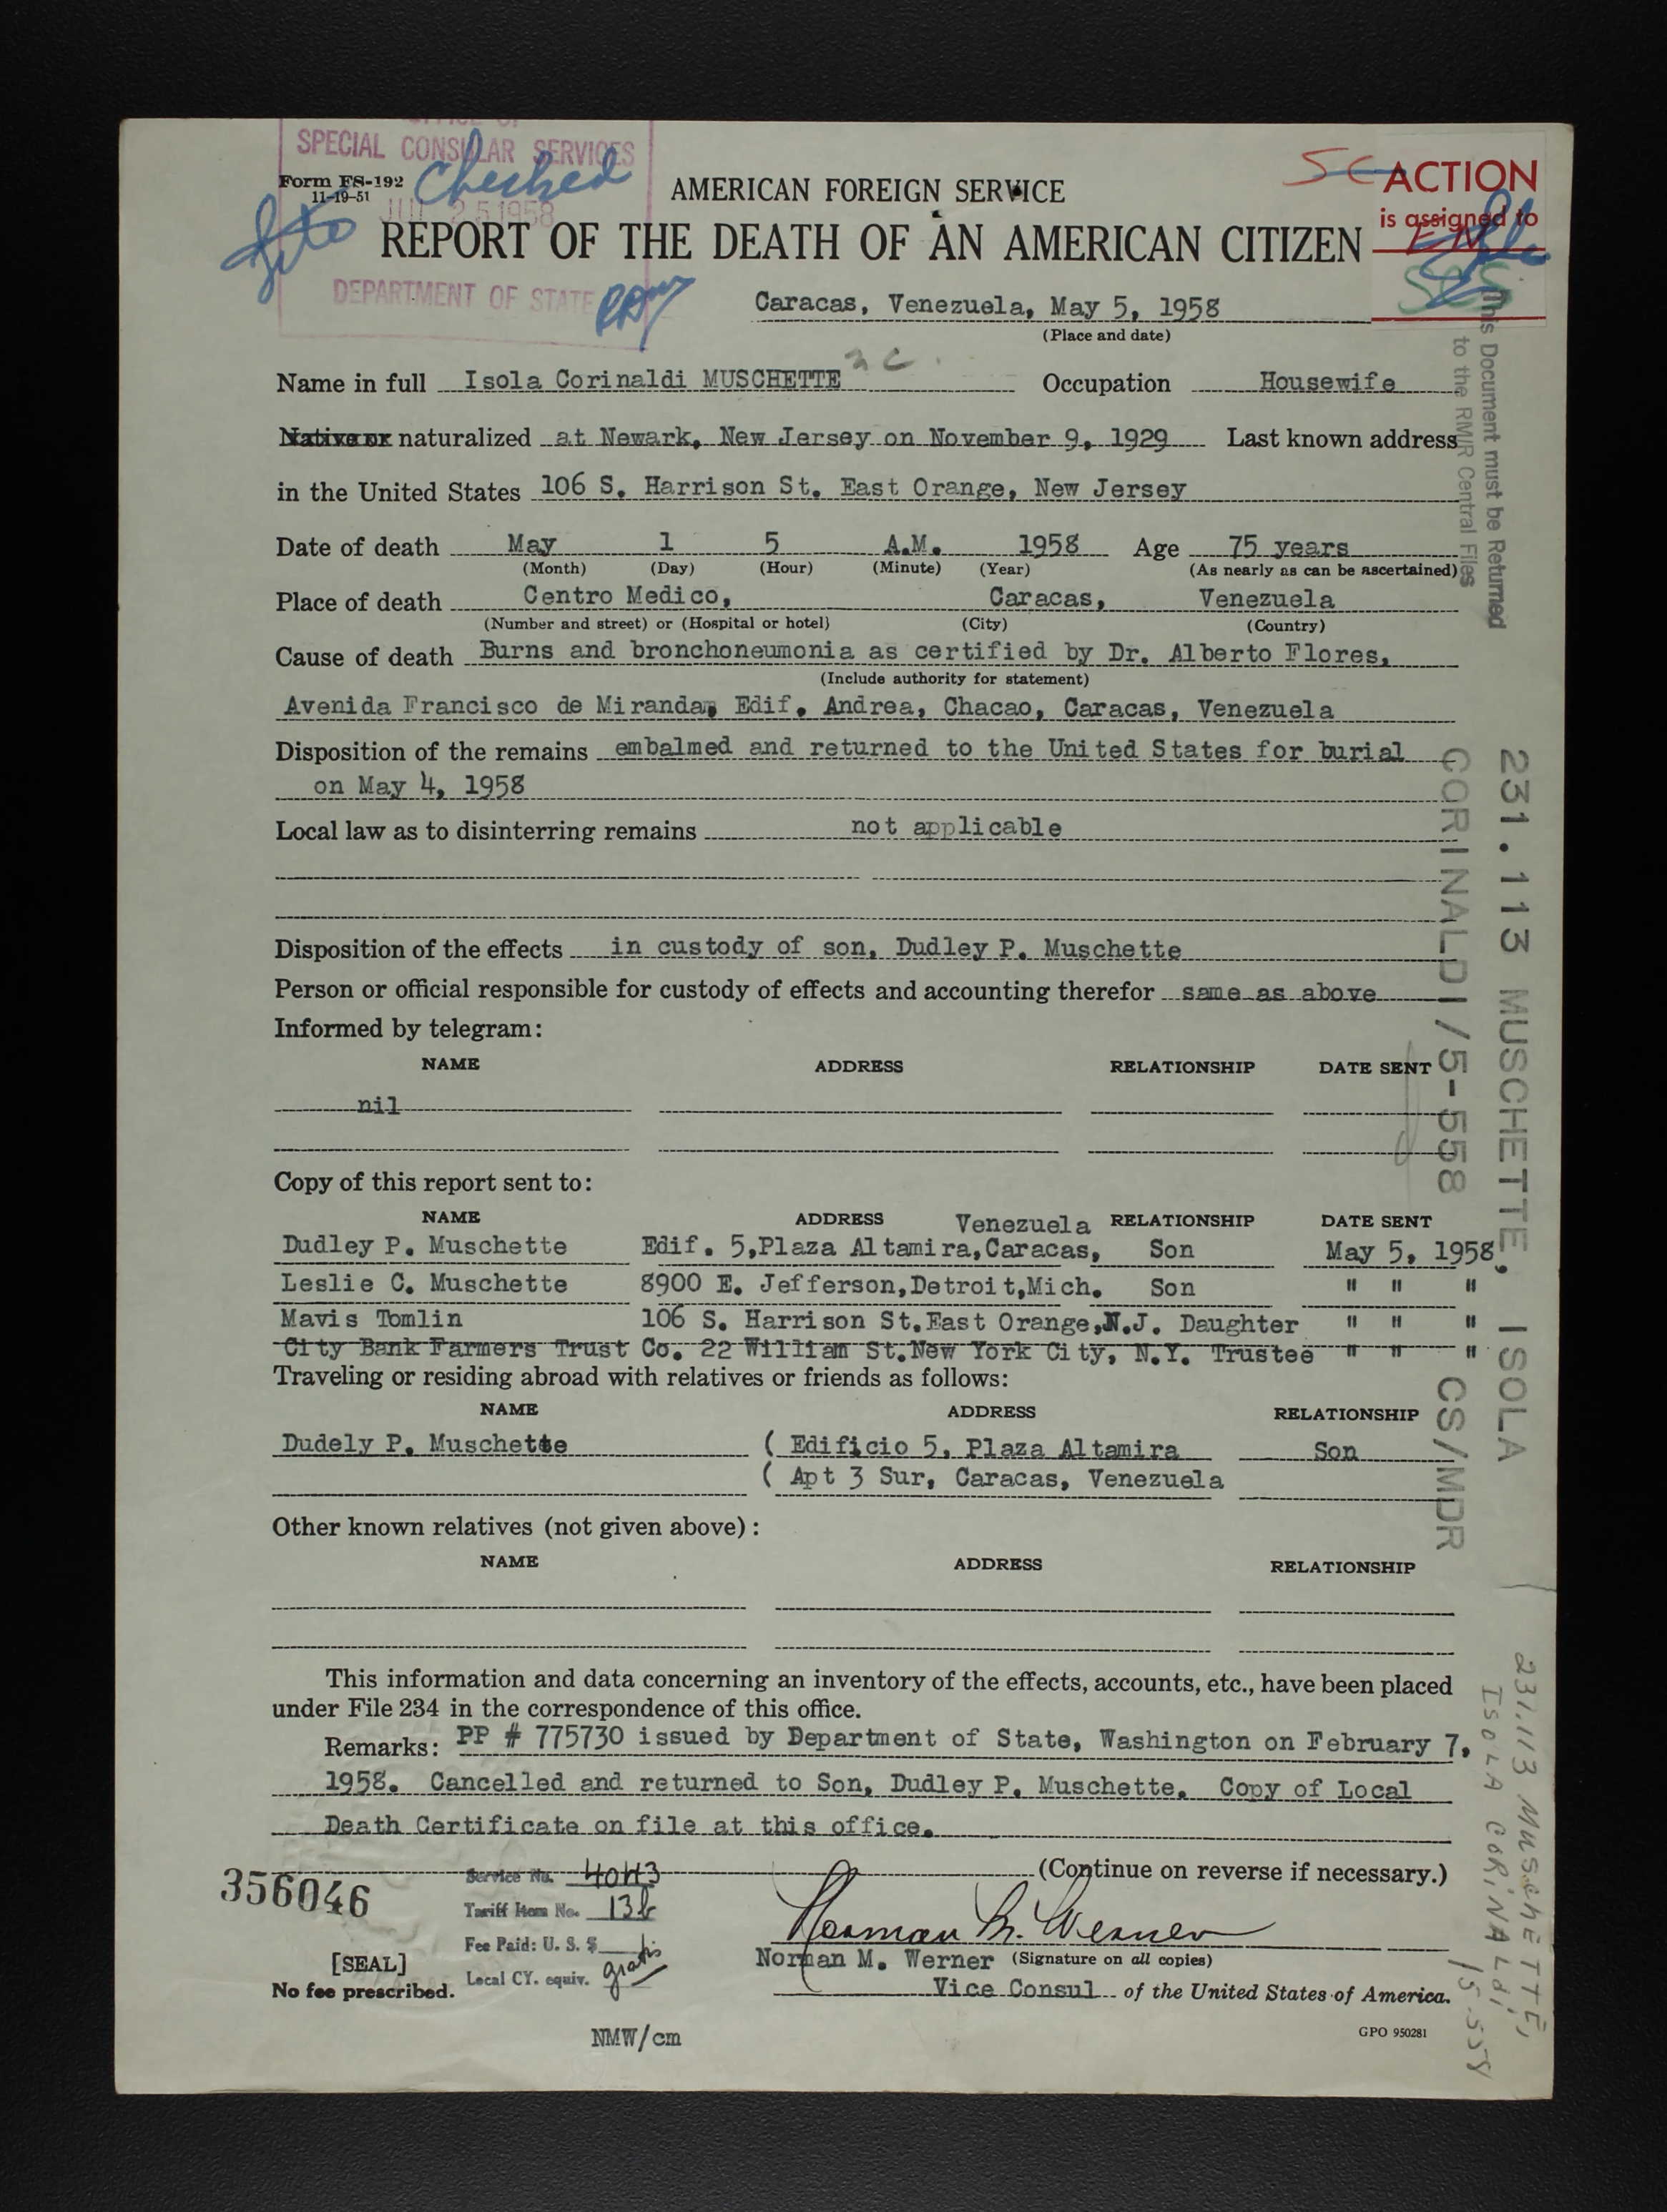 SPECIAL CONSULAR SERVICES
Checked
JUL 25 1958
DEPARTMENT OF STATE
Form FS-192
11-19-51
AMERICAN FOREIGN SERVICE
REPORT OF THE DEATH OF AN AMERICAN CITIZEN
SC ACTION
is assigned to
SCS
Caracas, Venezuela, May 5, 1958
(Place and date)
Name in full Isola Corinaldi MUSCHETTE Occupation Housewife
Native or naturalized at Newark, New Jersey on November 9, 1929 Last known address
in the United States 106 S. Harrison St. East Orange, New Jersey
Date of death May 1 5 A.M. 1958 Age 75 years
(Month) (Day) (Hour) (Minute) (Year) (As nearly as can be ascertained)
Place of death Centro Medico, Caracas, Venezuela
(Number and street) or (Hospital or hotel) (City) (Country)
Cause of death Burns and bronchoneumonia as certified by Dr. Alberto Flores,
(Include authority for statement)
Avenida Francisco de Miranda, Edif. Andrea, Chacao, Caracas, Venezuela
Disposition of the remains embalmed and returned to the United States for burial
on May 4, 1958
Local law as to disinterring remains not applicable
Disposition of the effects in custody of son, Dudley P. Muschette
Person or official responsible for custody of effects and accounting therefor same as above
Informed by telegram:
NAME ADDRESS RELATIONSHIP DATE SENT
nil
Copy of this report sent to:
NAME ADDRESS Venezuela RELATIONSHIP DATE SENT
Dudley P. Muschette Edif. 5,Plaza Altamira,Caracas, Son May 5, 1958
Leslie C. Muschette 8900 E. Jefferson,Detroit,Mich. Son " " "
Mavis Tomlin 106 S. Harrison St.East Orange,N.J. Daughter " " "
City Bank Farmers Trust Co. 22 William St.New York City, N.Y. Trustee " " "
Traveling or residing abroad with relatives or friends as follows:
NAME ADDRESS RELATIONSHIP
Dudely P. Muschette ( Edificio 5, Plaza Altamira Son
( Apt 3 Sur, Caracas, Venezuela
Other known relatives (not given above):
NAME ADDRESS RELATIONSHIP
This information and data concerning an inventory of the effects, accounts, etc., have been placed
under File 234 in the correspondence of this office.
Remarks: PP # 775730 issued by Department of State, Washington on February 7,
1958. Cancelled and returned to Son, Dudley P. Muschette. Copy of Local
Death Certificate on file at this office.
(Continue on reverse if necessary.)
356046
Service No. 4043
Tariff Item No. 13b
Fee Paid: U. S. $
Local CY. equiv. gratis
[SEAL]
No fee prescribed.
Norman M. Werner
Norman M. Werner (Signature on all copies)
Vice Consul of the United States of America.
NMW/cm
GPO 950281
This Document must be Returned
to the RM/R Central Files
231.113 MUSCHETTE, ISOLA
CORINALDI/5-558 CS/MDR
231.113 MUSCHETTE,
ISOLA CORINALDI
/5-558